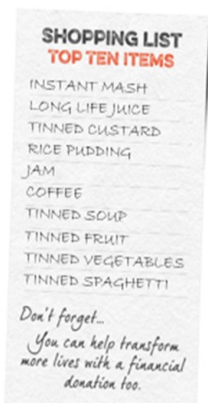 SHOPPING LIST
TOP TEN ITEMS
INSTANT MASH
LONG LIFE JUICE
TINNED CUSTARD
RICE PUDDING
JAM
COFFEE
TINNED SOUP
TINNED FRUIT
TINNED VEGETABLES
TINNED SPAGHETTI
Don't forget...
You can help transform
more lives with a financial
donation too.